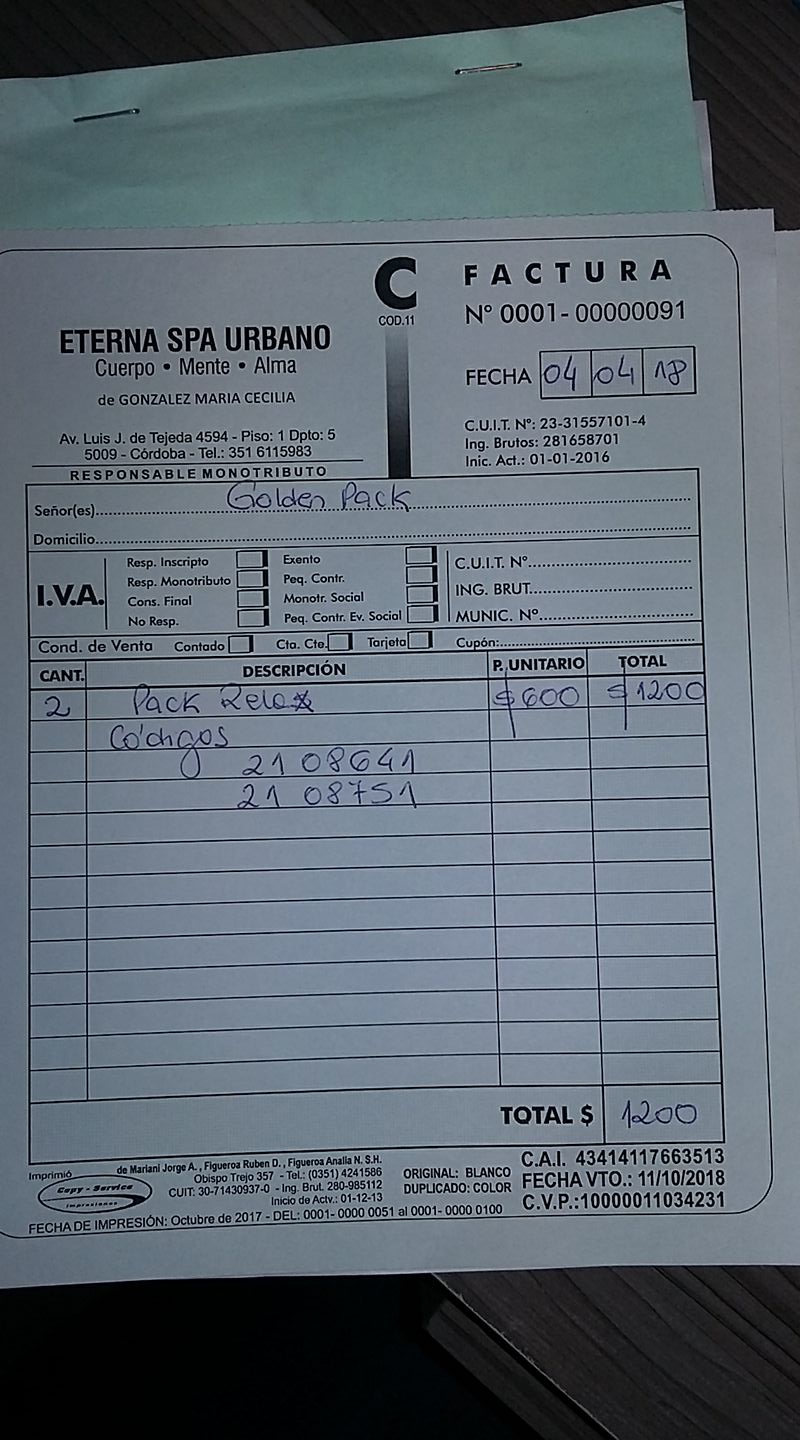 C
COD.11
FACTURA
Nº 0001-00000091
ETERNA SPA URBANO
Cuerpo • Mente • Alma
de GONZALEZ MARIA CECILIA
FECHA 04 04 18
Av. Luis J. de Tejeda 4594 - Piso: 1 Dpto: 5
5009 - Córdoba - Tel.: 351 6115983
RESPONSABLE MONOTRIBUTO
C.U.I.T. Nº: 23-31557101-4
Ing. Brutos: 281658701
Inic. Act.: 01-01-2016
Señor(es) Golden Pack
Domicilio
I.V.A.
Resp. Inscripto
Resp. Monotributo
Cons. Final
No Resp.
Exento
Peq. Contr.
Monotr. Social
Peq. Contr. Ev. Social
C.U.I.T. Nº
ING. BRUT.
MUNIC. Nº
Cond. de Venta Contado Cta. Cte. Tarjeta Cupón:
CANT. DESCRIPCIÓN P. UNITARIO TOTAL
2 Pack Relax $600 $1200
Códigos
21 08641
21 08751
TOTAL $ 1200
Imprimió
Copy - Service
Impresiones
de Mariani Jorge A., Figueroa Ruben D., Figueroa Analia N. S.H.
Obispo Trejo 357 - Tel.: (0351) 4241586
CUIT: 30-71430937-0 - Ing. Brut. 280-985112
Inicio de Actv.: 01-12-13
ORIGINAL: BLANCO
DUPLICADO: COLOR
C.A.I. 43414117663513
FECHA VTO.: 11/10/2018
C.V.P.:10000011034231
FECHA DE IMPRESIÓN: Octubre de 2017 - DEL: 0001- 0000 0051 al 0001- 0000 0100